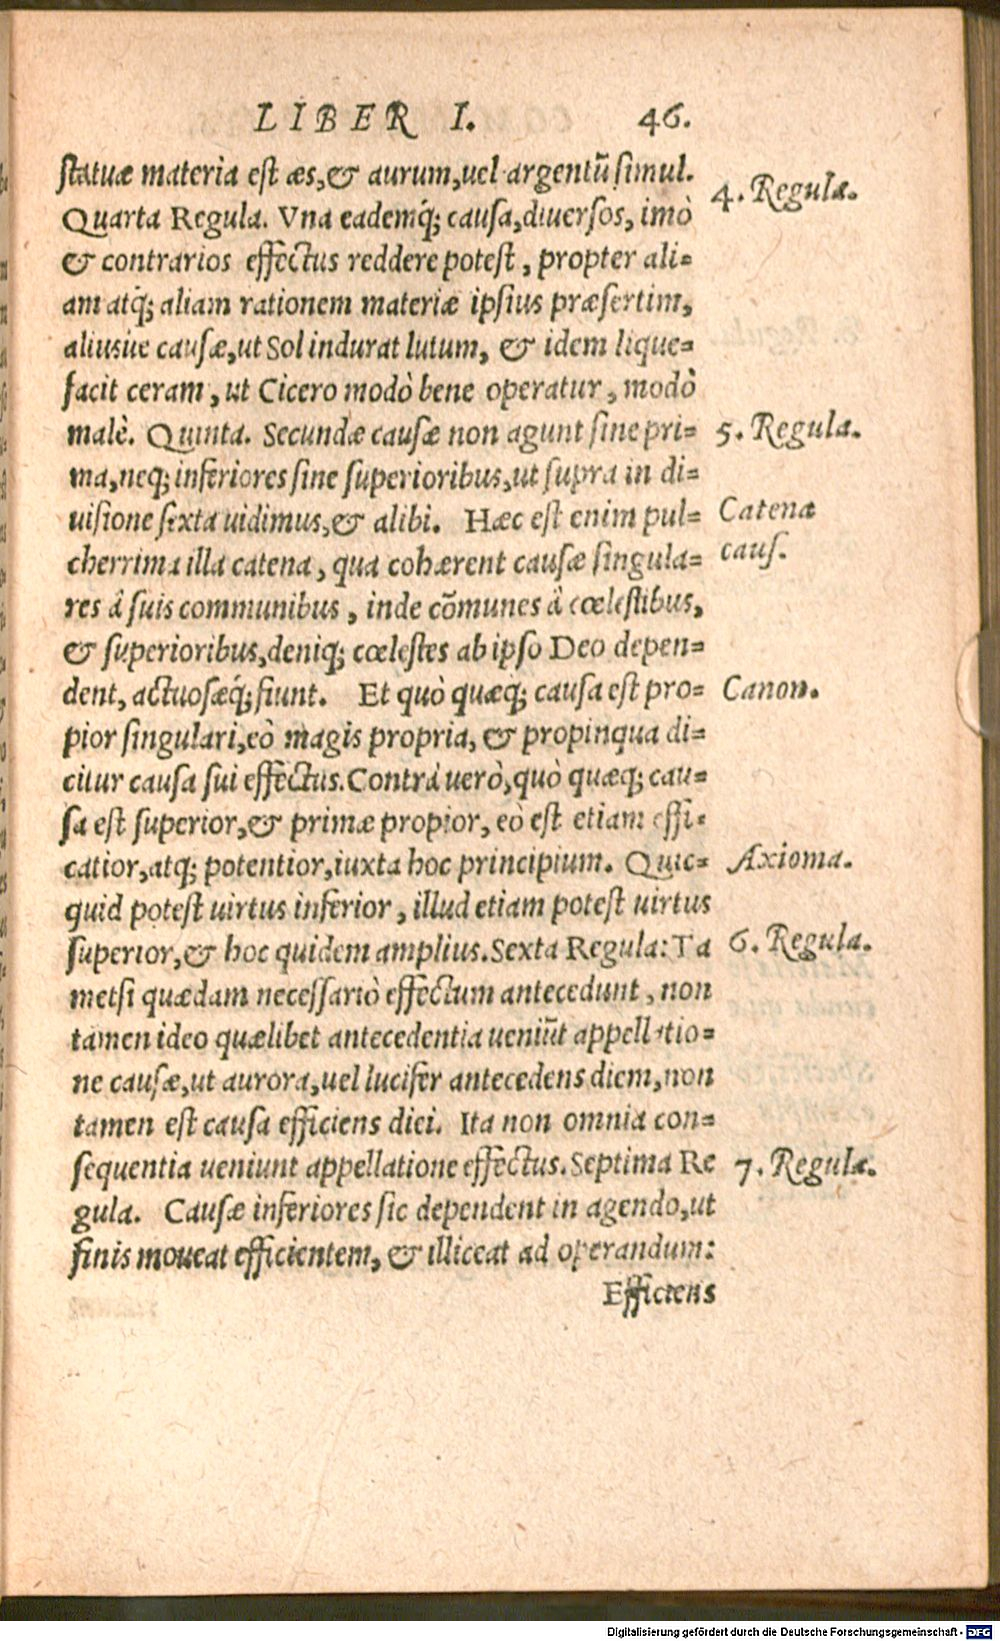 LIBER I. 46.
statuæ materia est æs,& aurum,uel argentũ simul.
4. Regula.
Quarta Regula. Vna eademq́; causa,diuersos, imò
& contrarios effectus reddere potest, propter ali=
am atq́; aliam rationem materiæ ipsius præsertim,
aliusue causæ,ut Sol indurat lutum, & idem lique=
facit ceram, ut Cicero modò bene operatur, modò
malè. Quinta. Secundæ causæ non agunt sine pri=
5. Regula.
ma,neq; inferiores sine superioribus,ut supra in di=
uisione sexta uidimus,& alibi. Hæc est enim pul=
Catena
cherrima illa catena, qua cohærent causæ singula=
caus.
res â suis communibus, inde cõmunes â cœlestibus,
& superioribus,deniq; cœlestes ab ipso Deo depen=
dent, actuosæq́; fiunt. Et quò quæq; causa est pro=
Canon.
pior singulari,eò magis propria, & propinqua di=
citur causa sui effectus.Contrà uerò,quò quæq; cau=
sa est superior,& primæ propior, eò est etiam effi=
catior,atq; potentior,iuxta hoc principium. Quic=
Axioma.
quid potest uirtus inferior, illud etiam potest uirtus
superior,& hoc quidem amplius.Sexta Regula: Ta
6. Regula.
metsi quædam necessariò effectum antecedunt, non
tamen ideo quælibet antecedentia ueniũt appellatio=
ne causæ,ut aurora,uel lucifer antecedens diem,non
tamen est causa efficiens diei. Ita non omnia con=
sequentia ueniunt appellatione effectus.Septima Re
7. Regula.
gula. Causæ inferiores sic dependent in agendo,ut
finis moueat efficientem, & illiceat ad operandum:
Efficiens
Digitalisierung gefördert durch die Deutsche Forschungsgemeinschaft - DFG